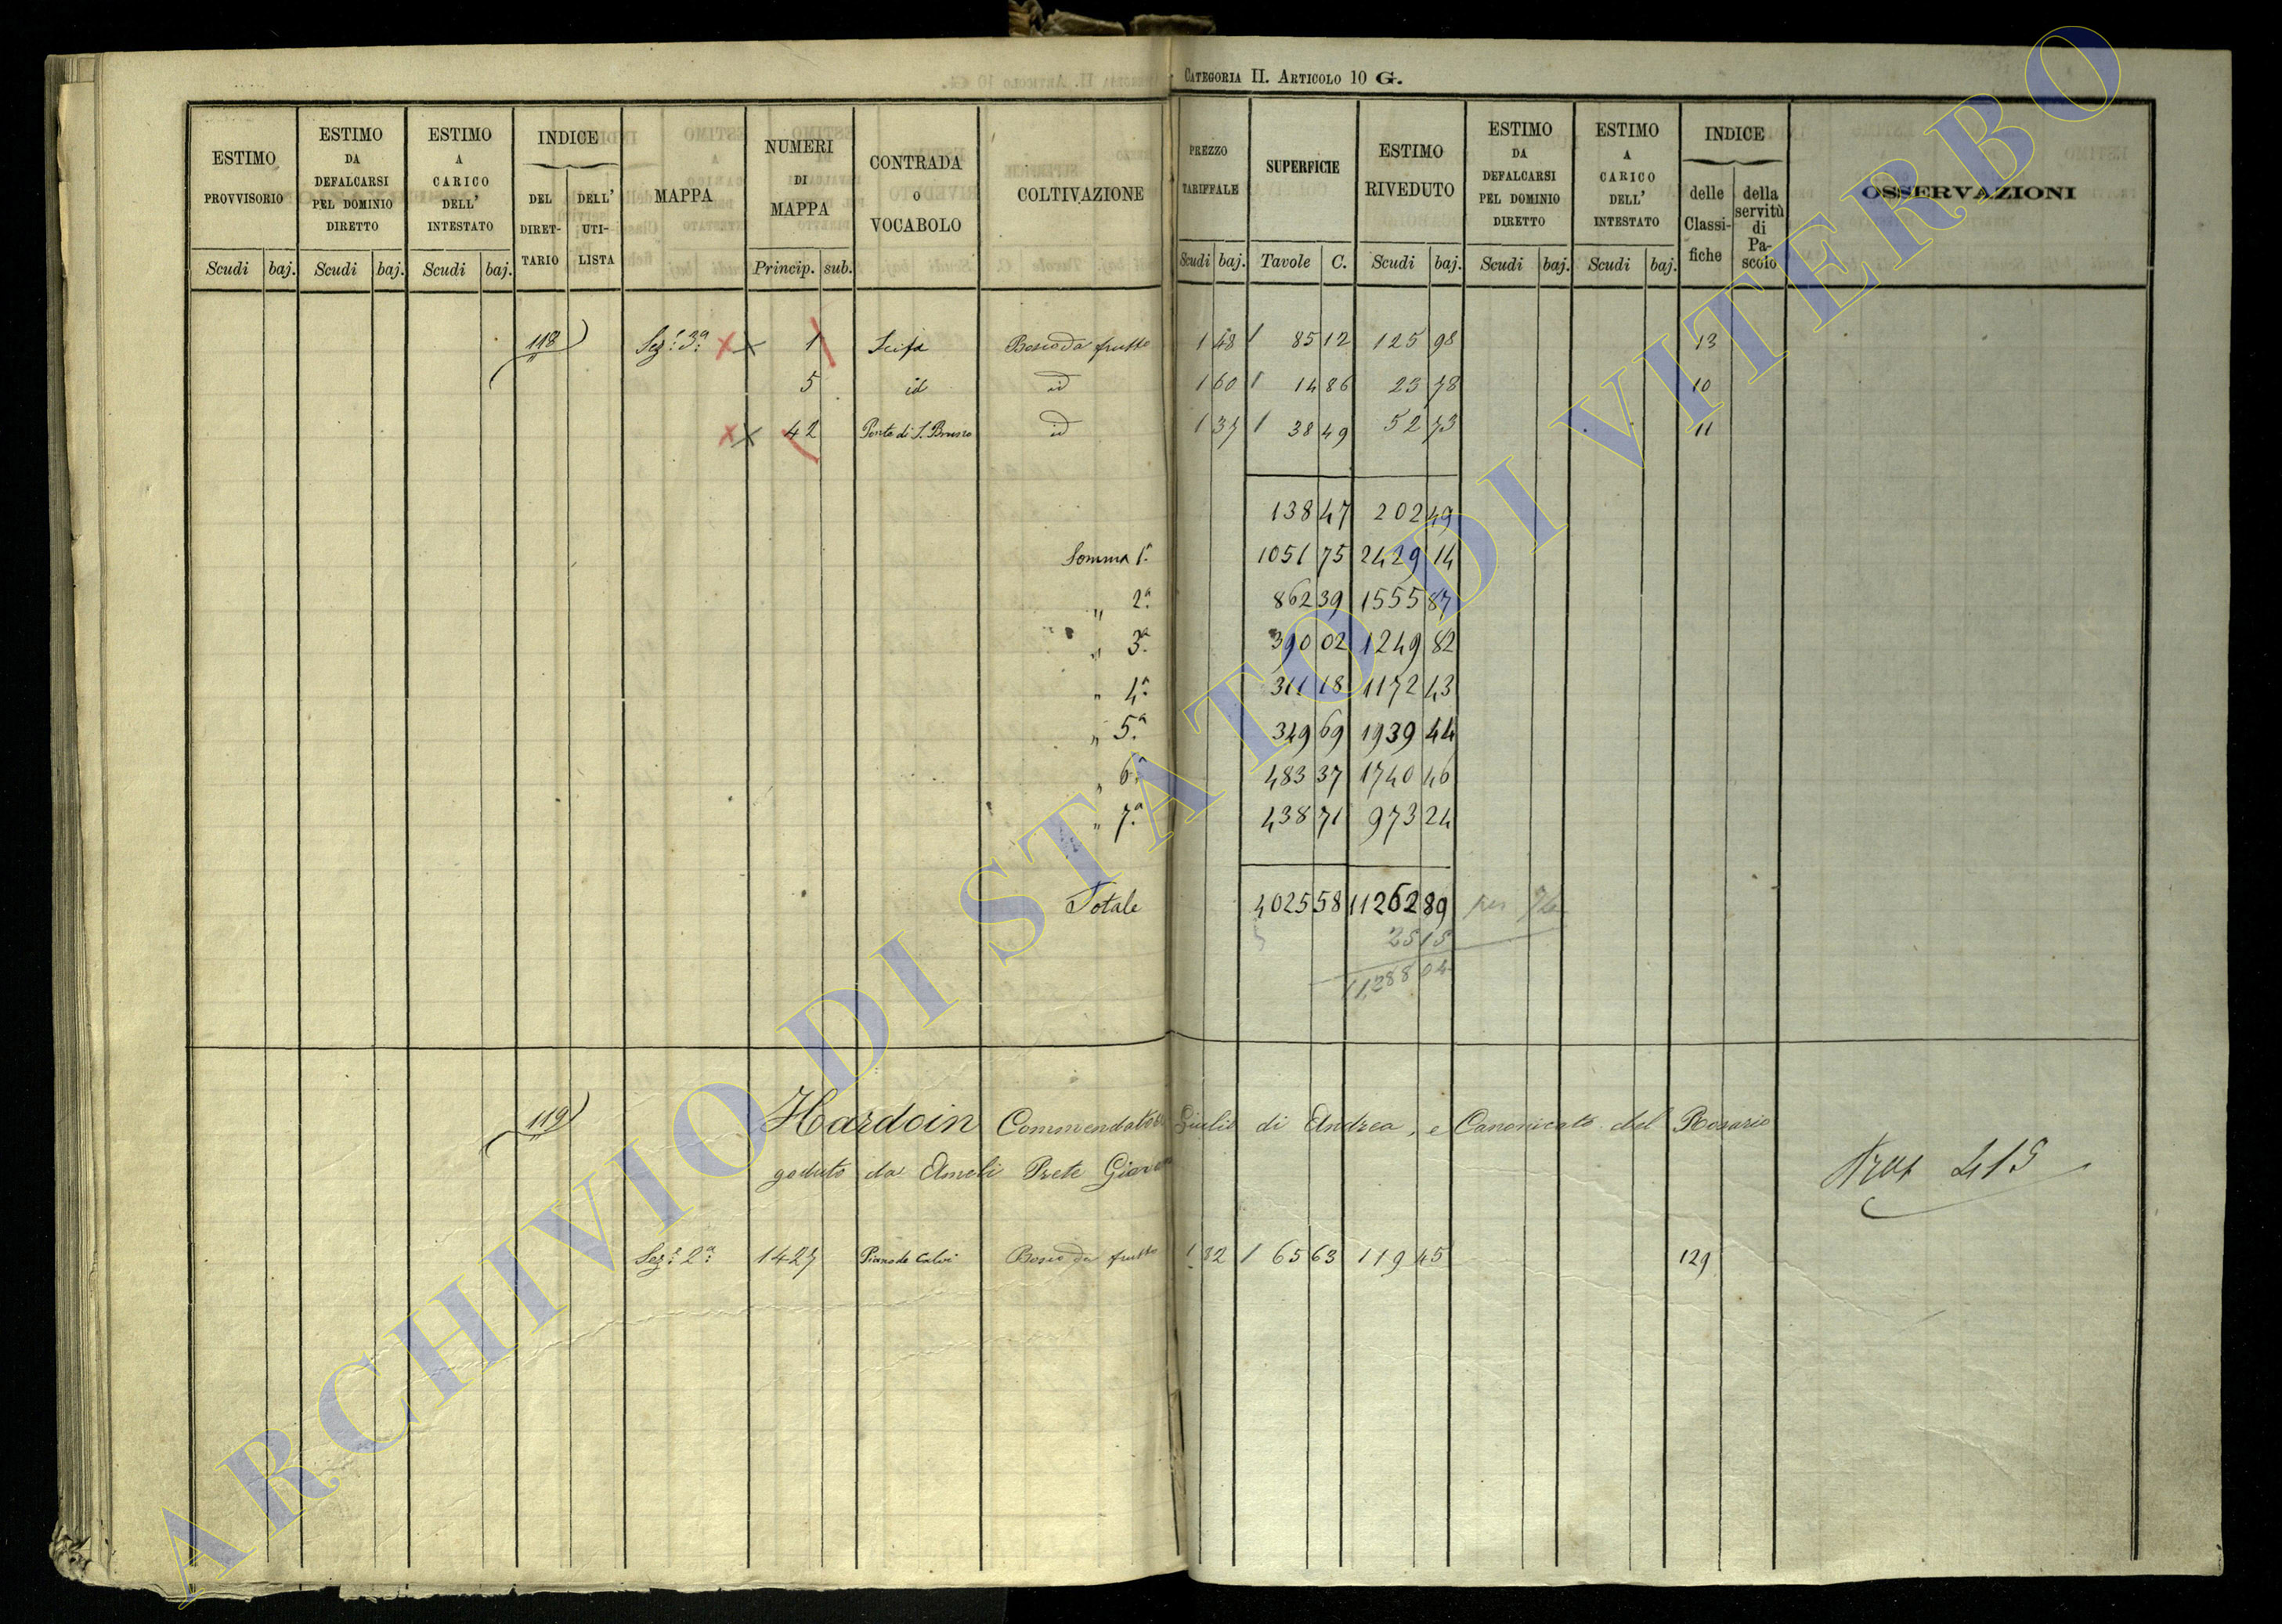 CATEGORIA II. ARTICOLO 10 G.
ESTIMO PROVVISORIO
Scudi baj.
ESTIMO DA DEFALCARSI PEL DOMINIO DIRETTO
Scudi baj.
ESTIMO A CARICO DELL' INTESTATO
Scudi baj.
INDICE
DEL DIRET-TARIO
DELL' UTI-LISTA
MAPPA
NUMERI DI MAPPA
Princip. sub.
CONTRADA O VOCABOLO
COLTIVAZIONE
PREZZO TARIFFALE
Scudi baj.
SUPERFICIE
Tavole C.
ESTIMO RIVEDUTO
Scudi baj.
ESTIMO DA DEFALCARSI PEL DOMINIO DIRETTO
Scudi baj.
ESTIMO A CARICO DELL' INTESTATO
Scudi baj.
INDICE
delle Classi-fiche
della servitù di Pa-scolo
OSSERVAZIONI
118 Sez.e 3a 1 Scifa Bosco da frutto 1 48 85 12 125 98 13
5 id id 1 60 14 86 23 78 10
42 Ponte di S. Bruno id 1 37 38 49 52 73 11
138 47 202 49
Somma 1a 1051 75 2429 14
" 2a 862 39 1555 87
" 3a 390 02 1249 82
" 4a 311 18 1172 43
" 5a 349 69 1939 44
" 6a 483 37 1740 46
" 7a 438 71 973 24
Totale 4025 58 11262 89
25 15
11,288 04
119 Hardoin Commendatore Giulio di Andrea, e Canonicato del Rosario
goduto da Ameli Prete
415
Sez.e 2a 1427 Piano de Calvi Bosco da frutto 1 82 65 63 119 45 129
ARCHIVIO DI STATO DI VITERBO